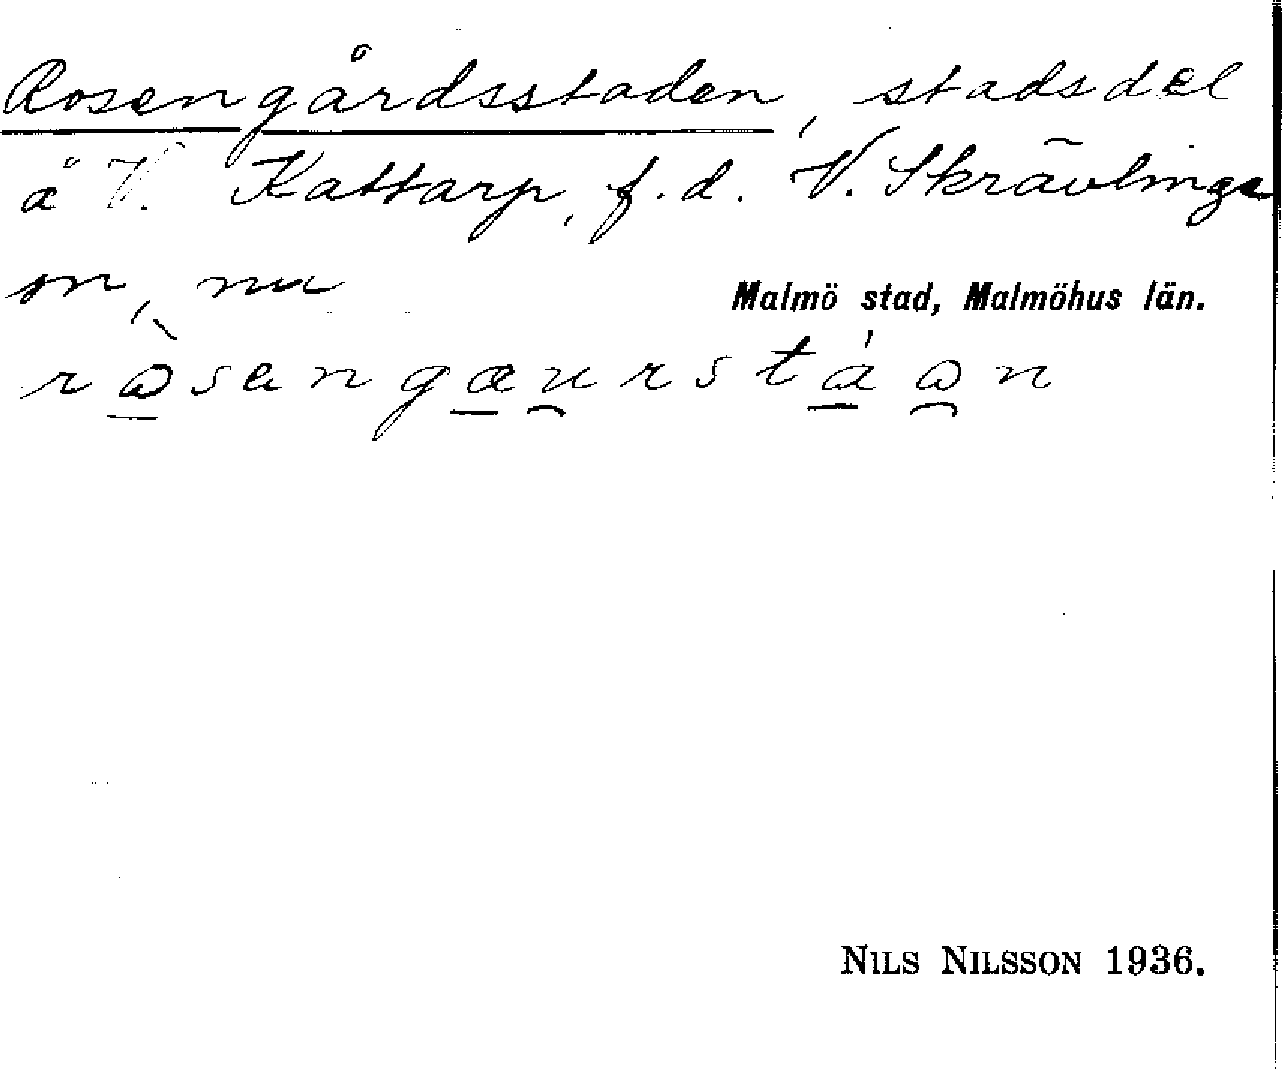 Rosengårdsstaden, stadsdel
å V. Kattarp, f.d. V. Skrävlinge
sn, nu
Malmö stad, Malmöhus län.
ròsengæu̯rstáən
NILS NILSSON 1936.